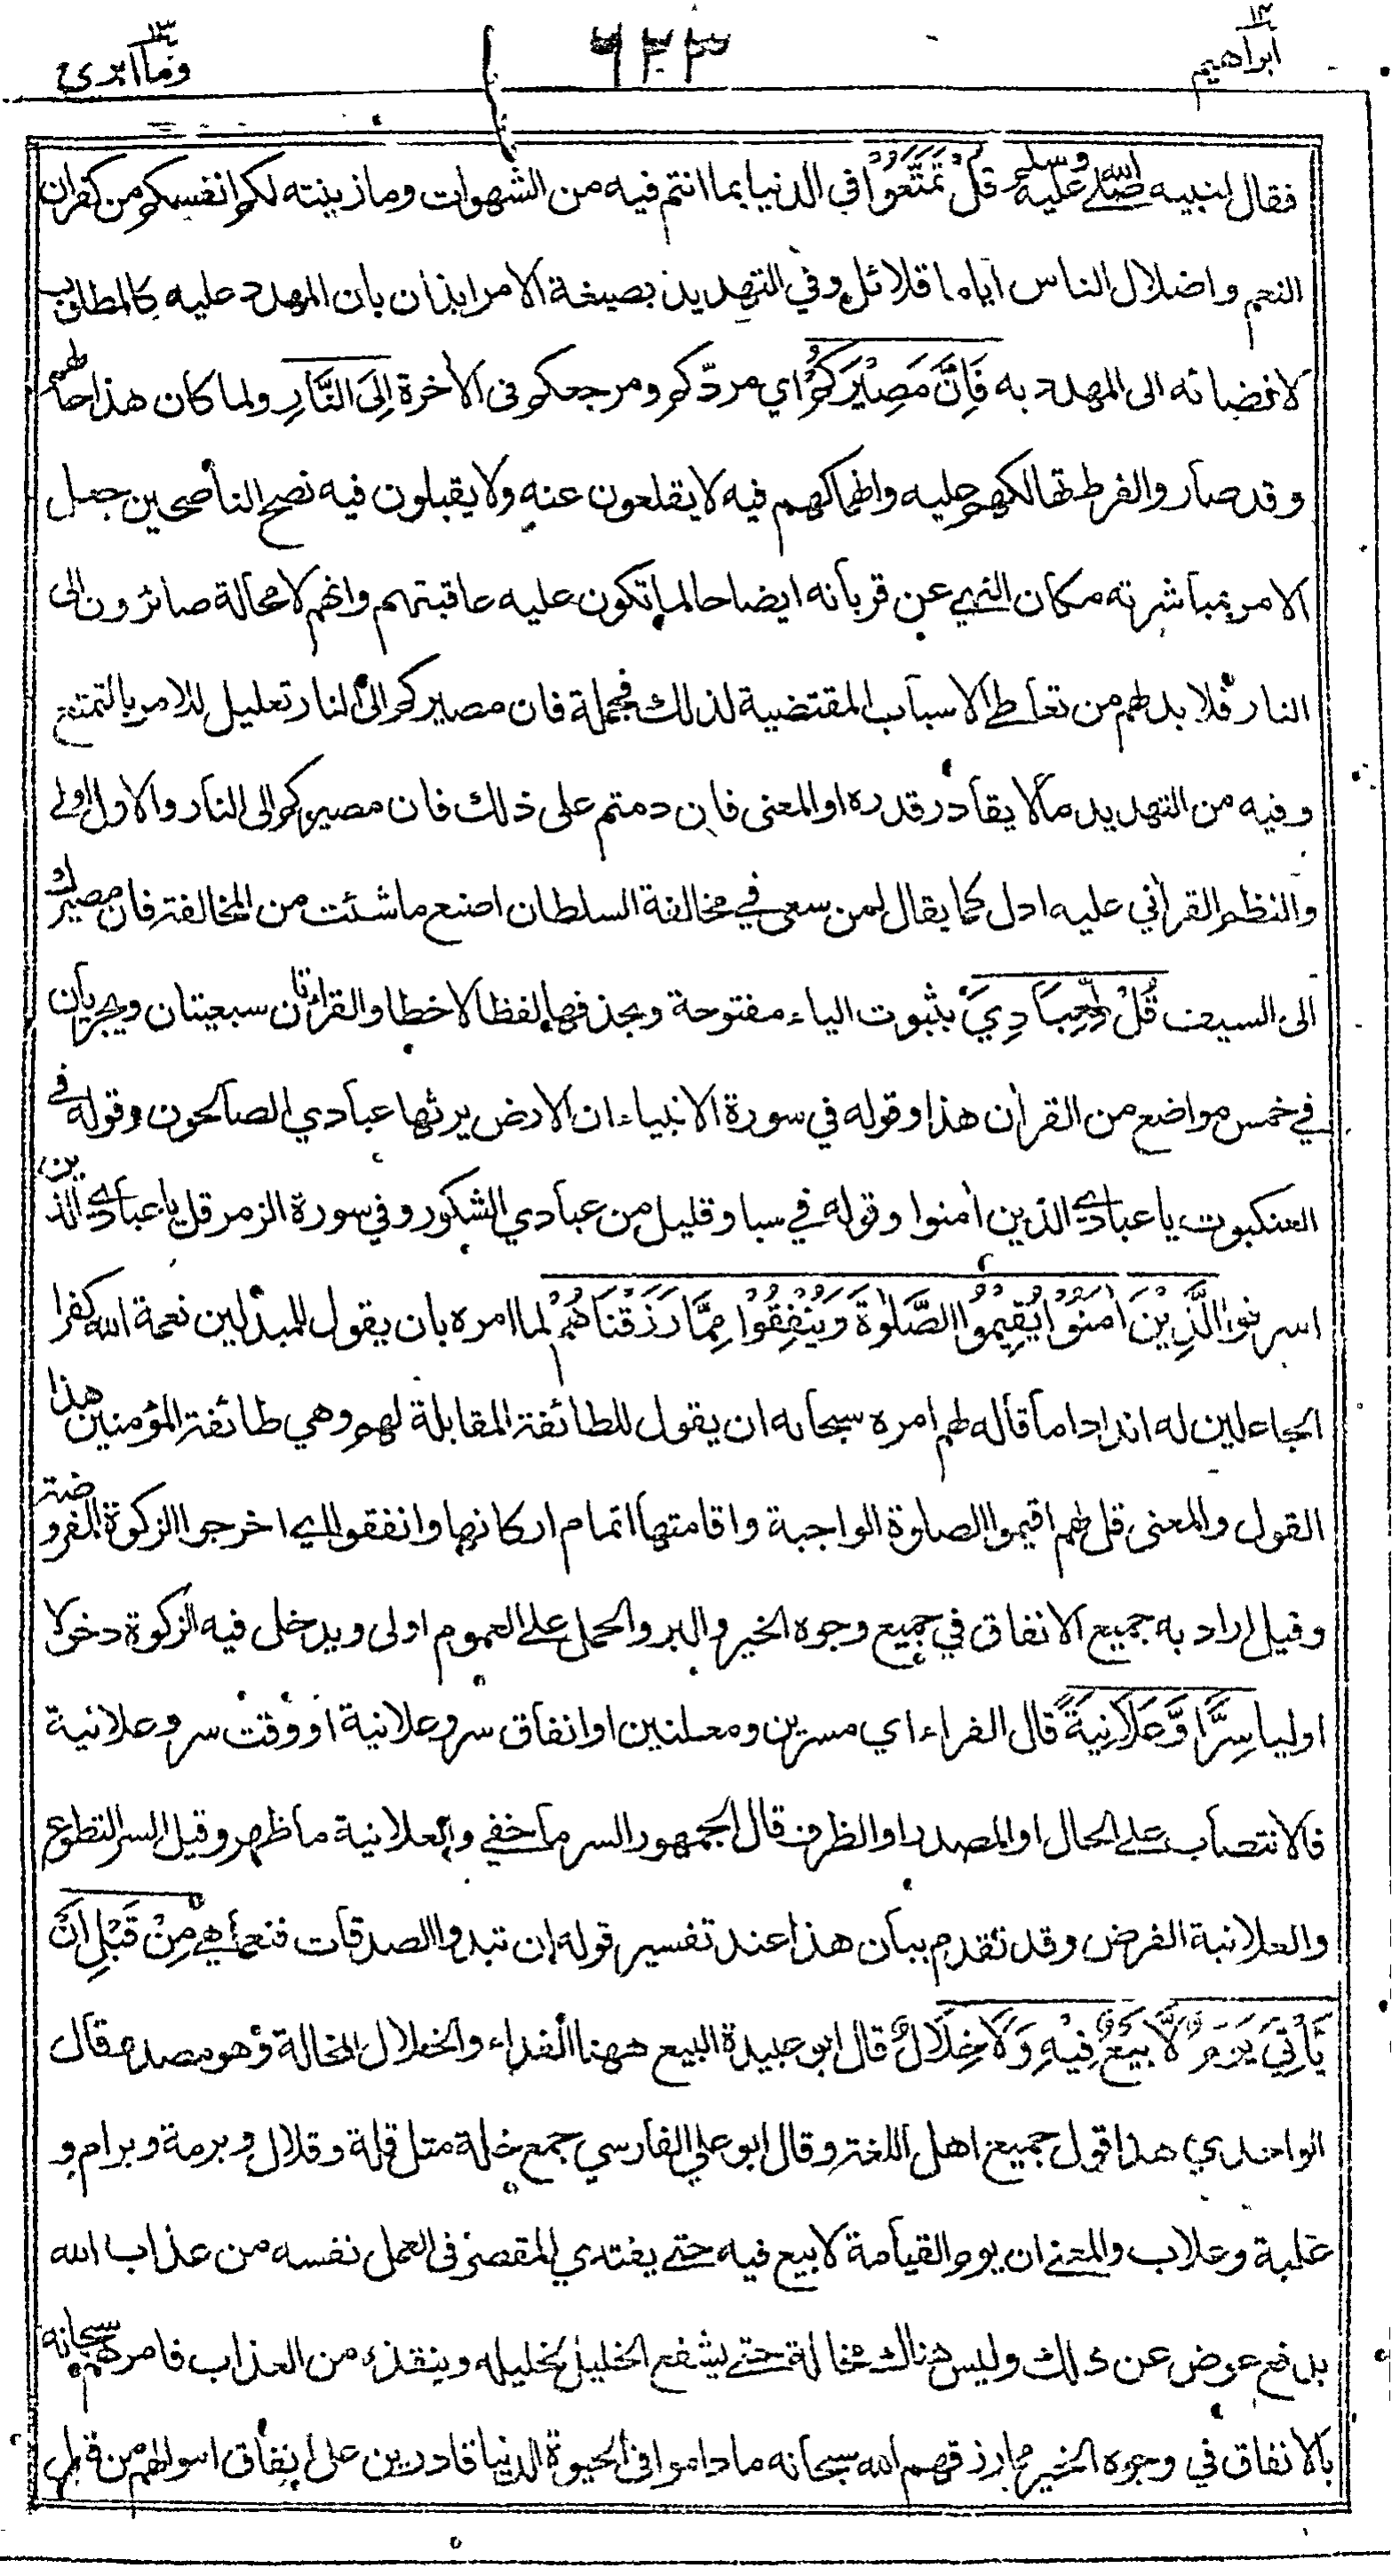 ابراهيم ١٤
٦٢٣
وما ابرئ ١٣
فقال لنبيه صلى الله عليه وسلم قُلْ تَمَتَّعُوْا في الدنيا بما انتم فيه من الشهوات وما زينته لكم انفسكم من كفران
النعم و اضلال الناس اياما قلائل وفي التهديد بصيغة الامر ايذان بان المهدد عليه كالمطلوب
لافضائه الى المهدد به فَاِنَّ مَصِيْرَكُمْ اي مردّكم ومرجعكم فى الأخرة اِلَى النَّارِ ولما كان هذا حالهم
وقد صار والفرط تهالكهم عليه وانهماكهم فيه لا يقلعون عنه ولا يقبلون فيه نصح الناصحين جعل
الامر بمباشرته مكان النهي عن قربانه ايضاحا لما تكون عليه عاقبتهم وانهم لا محالة صائرون الى
النار فلا بد لهم من تعاطي الاسباب المقتضية لذلك فجملة فان مصيركم الى النار تعليل للامر بالتمتع
وفيه من التهديد مالا يقادر قدره او المعنى فان دمتم على ذلك فان مصيركم الى النار والاول اولى
والنظم القرأني عليه ادل كما يقال لمن سعى في مخالفة السلطان اصنع ما شئت من المخالفة فان مصيرك
الى السيف قُلْ لِّعِبَادِيَ بثبوت الياء مفتوحة وبحذفها لفظا لاخطا والقراءتان سبعيتان ويجريان
في خمس مواضع من القرأن هذا وقوله في سورة الانبياء ان الارض يرثها عبادي الصالحون وقوله في
العنكبوت يا عبادي الذين أمنوا وقوله في سبا وقليل من عبادي الشكور وفي سورة الزمر قل يا عبادي الذين
اسرفوا الَّذِيْنَ اٰمَنُوْا يُقِيْمُوا الصَّلٰوةَ وَيُنْفِقُوْا مِمَّا رَزَقْنَاهُمْ لما امره بان يقول للمبدلين نعمة الله كفرا
الجاعلين له اندادا ما قاله لهم امره سبحانه ان يقول للطائفة المقابلة لهم وهي طائفة المؤمنين هذا
القول والمعنى قل لهم اقيموا الصلوة الواجبة واقامتها اتمام اركانها وانفقوا اي اخرجوا الزكوة المفروضة
وقيل اراد به جميع الانفاق في جميع وجوه الخير والبر والحمل على العموم اولى ويدخل فيه الزكوة دخولا
اوليا سِرًّا وَّعَلَانِيَةً قال الفراء اي مسرين ومعلنين او انفاق سر وعلانية او وقت سر وعلانية
فالانتصاب على الحال او المصدر او الظرف قال الجمهور السر ما خفي والعلانية ما ظهر وقيل السر التطوع
والعلانية الفرض وقد تقدم بيان هذا عند تفسير قوله ان تبدوا الصدقات فنعما هي مِنْ قَبْلِ اَنْ
يَّأْتِيَ يَوْمٌ لَّا بَيْعٌ فِيْهِ وَلَا خِلَالٌ قال ابو عبيدة البيع ههنا الفداء والخلال المخالة وهو مصدر قال
الواحدي هذا قول جميع اهل اللغة وقال ابو علي الفارسي جمع خلة مثل قلة وقلال وبرمة وبرام و
علبة وعلاب والمعنى ان يوم القيامة لا بيع فيه حتى يفتدي المقصر فى العمل نفسه من عذاب الله
بدفع عوض عن ذلك وليس هناك مخالة حتى يشفع الخليل لخليله وينقذه من العذاب فامرهم سبحانه
بالانفاق في وجوه الخير مما رزقهم الله سبحانه ما داموا فى الحيوة الدنيا قادرين على انفاق اموالهم من قبل